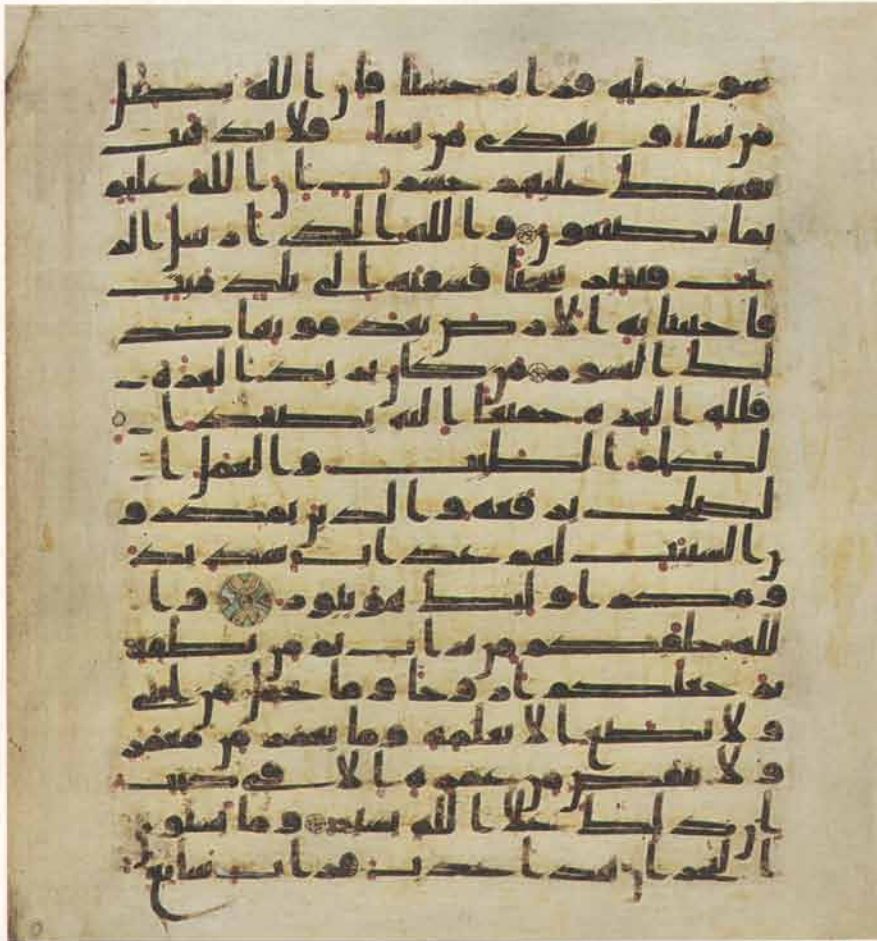 سو عمله فراه حسنا فان الله يضل
من يشا و يهدى من يشا فلا تذهب
نفسك عليهم حسرت ان الله عليم
بما يصنعون والله الذى ارسل الر
يح فتثير سحبا فسقنه الى بلد ميت
فاحيينا به الارض بعد موتها كذ
لك النشور من كان يريد العزة
فلله العزة جميعا اليه يصعد ا
لكلم الطيب والعمل ا
لصلح يرفعه والذين يمكرو
ن السيت لهم عذاب شديد
ومكر اوليك هو يبور وا
لله خلقكم من تراب ثم من نطفة
ثم جعلكم ازوجا وما تحمل من انثى
ولا تضع الا بعلمه وما يعمر من معمر
ولا ينقص من عمره الا فى كتب
ان ذلك على الله يسير وما يستو
ى البحرن هذا عذب فرات سايغ